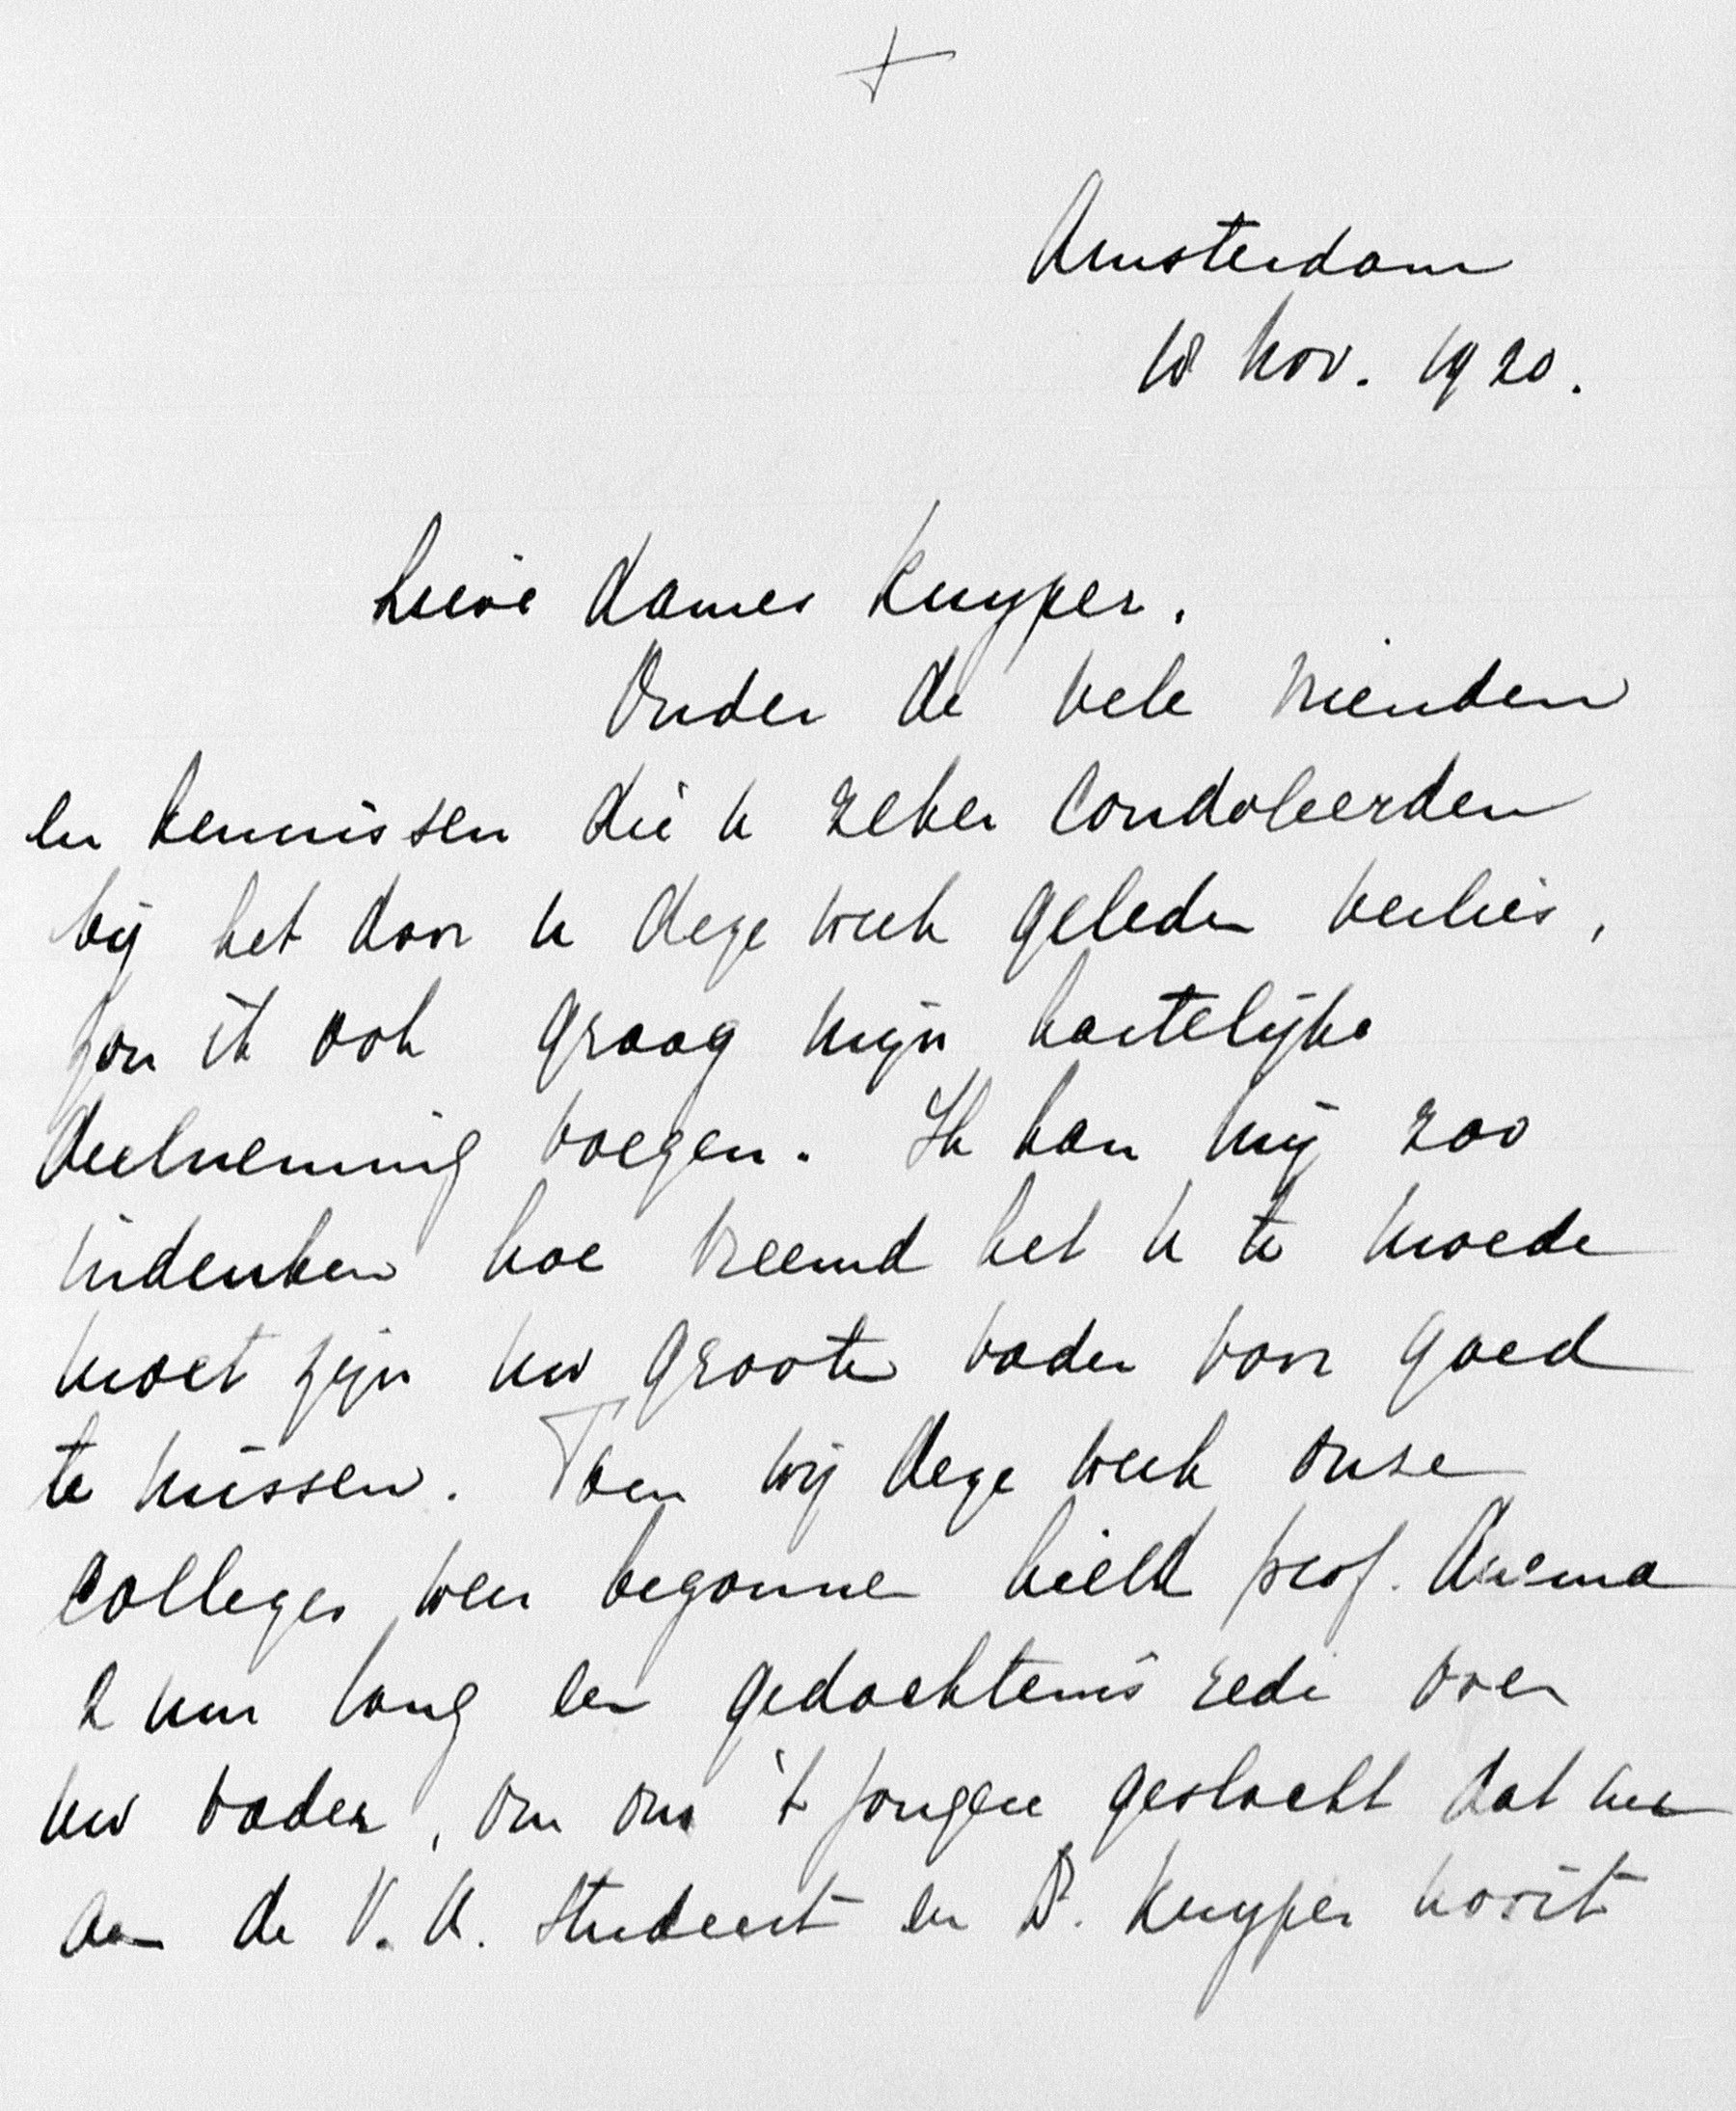 Amsterdam
18 Nov. 1920.
Lieve dames Kuyper.
Onder de vele vrienden
en kennissen die u zeker condoleerden
bij het door u deze week geleden verlies,
zou ik ook graag mijn hartelijke
deelneming voegen. Ik kan mij zoo
indenken hoe vreemd het u te moede
moet zijn uw groote vader voor goed
te missen. Toen wij deze week onze
colleges weer begonne hield prof. Anema
2 uur lang een gedachtenis rede over
uw vader, om ons 't jongere geslacht dat nu
aan de V.U. studeert en Dr. Kuyper nooit